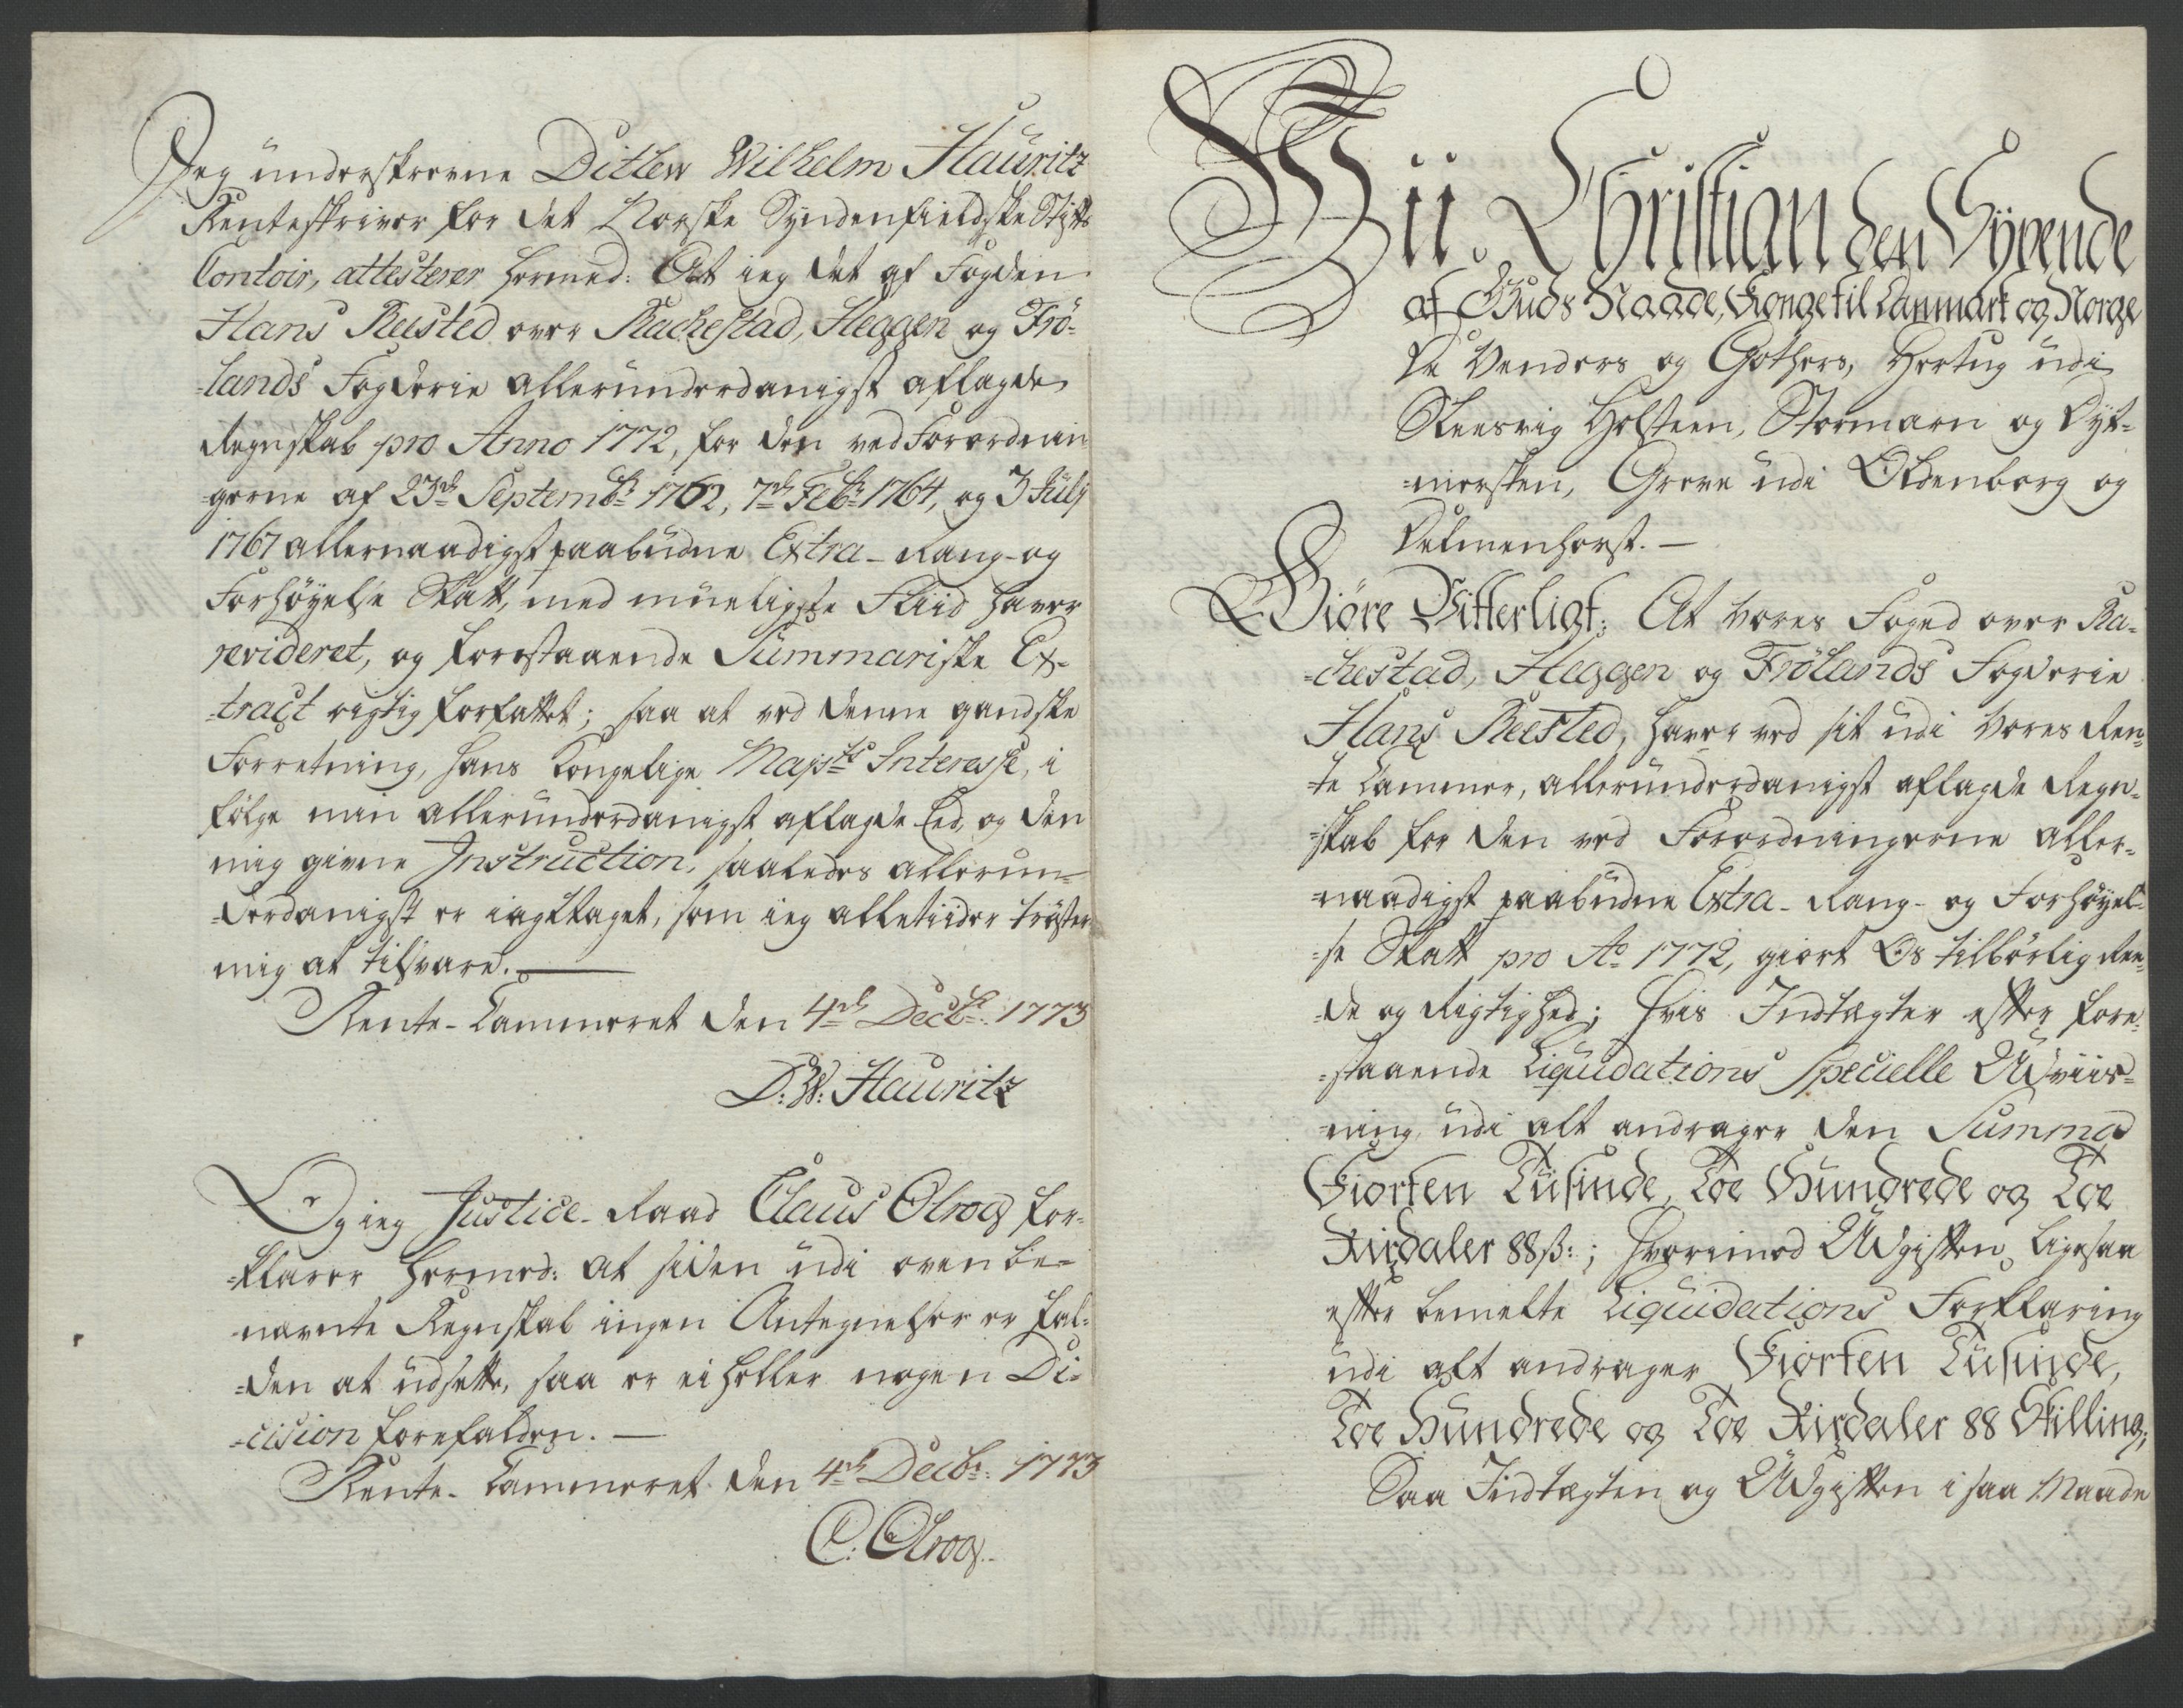 Jeg underskrevne Ditlew Wilhelm Hauritz
Renteskriver for det Norske Syndenfieldske Stifts
Contoir, attesterer hermed: At ieg det af Fogden
Hans Reusted over Rachestad, Heggen og Frö-
-lands Fogderie allerunderdanigst aflagde
Regnskab pro Anno 1772, for den ved Forordnin
gerne af 23de Septembr 1762, 7de Febr 1764, og 3 Julj
1767 allernaadigst paabudne Extra- Rang- og
Forhöyelse Skatt, med mueligste Fliid haver
revideret, og forestaaende Summariske Ex-
-tract rigtig forfattet; saa at ved denne gandske
Forretning, hans Kongelige Majts Interesse, i
fölge min allerunderdanigst aflagde Eed, og den
mig givne Instruction, saaledes allerun-
-derdanigst er iagttaget, som ieg alletiider tröster
mig at tilsvare.
Rente-Cammeret den 4de Decbr: 1773
D: W: Hauritz
Og ieg Justice- Raad Claus Olrog for-
-klarer hermed: at siden udi oven be-
-nævnte Regnskab ingen Antegnelser er fal-
-den at udsette, saa er ei heller nogen De-
-cision forefalden.
Rente- Cammeret den 4de Decbr: 1773
C: Olrog.
Wii Christian den Syvende
af Guds Naade, Konge til Danmark og Norge
De Venders og Gothers, Hertug udi
Slesvig Holsteen, Stormarn og Dyt-
-mersken, Greve udi Oldenborg og
Delmenhorst.
Giöre Vitterligt: At Vores Foged over Ra-
-chestad, Heggen og Frölands Fogderie
Hans Reusted, haver ved sit udi Vores Ren-
-te Cammer, allerunderdanigst aflagde Regn-
-skab for den ved Forordningerne aller-
-naadigst paabudne Extra- Rang- og Forhöyel-
-se Skatt pro Ao 1772, giort Os tilbörlig Ree-
-de og Rigtighed; Hvis Indtægter efter fore-
-staaende Liquidations specielle Udviis-
-ning udi alt andrager den Summa
Fiorten Tusinde, Toe Hundrede og Toe
Rixdaler 88 ß:; Hvorimod Udgiften ligesaa
efter bemelte Liquidations Forklaring
udi alt andrager Fiorten Tusinde,
Toe Hundrede og Toe Rixdaler 88 Skilling;
Saa Indtægten og Udgiften i saa Maade